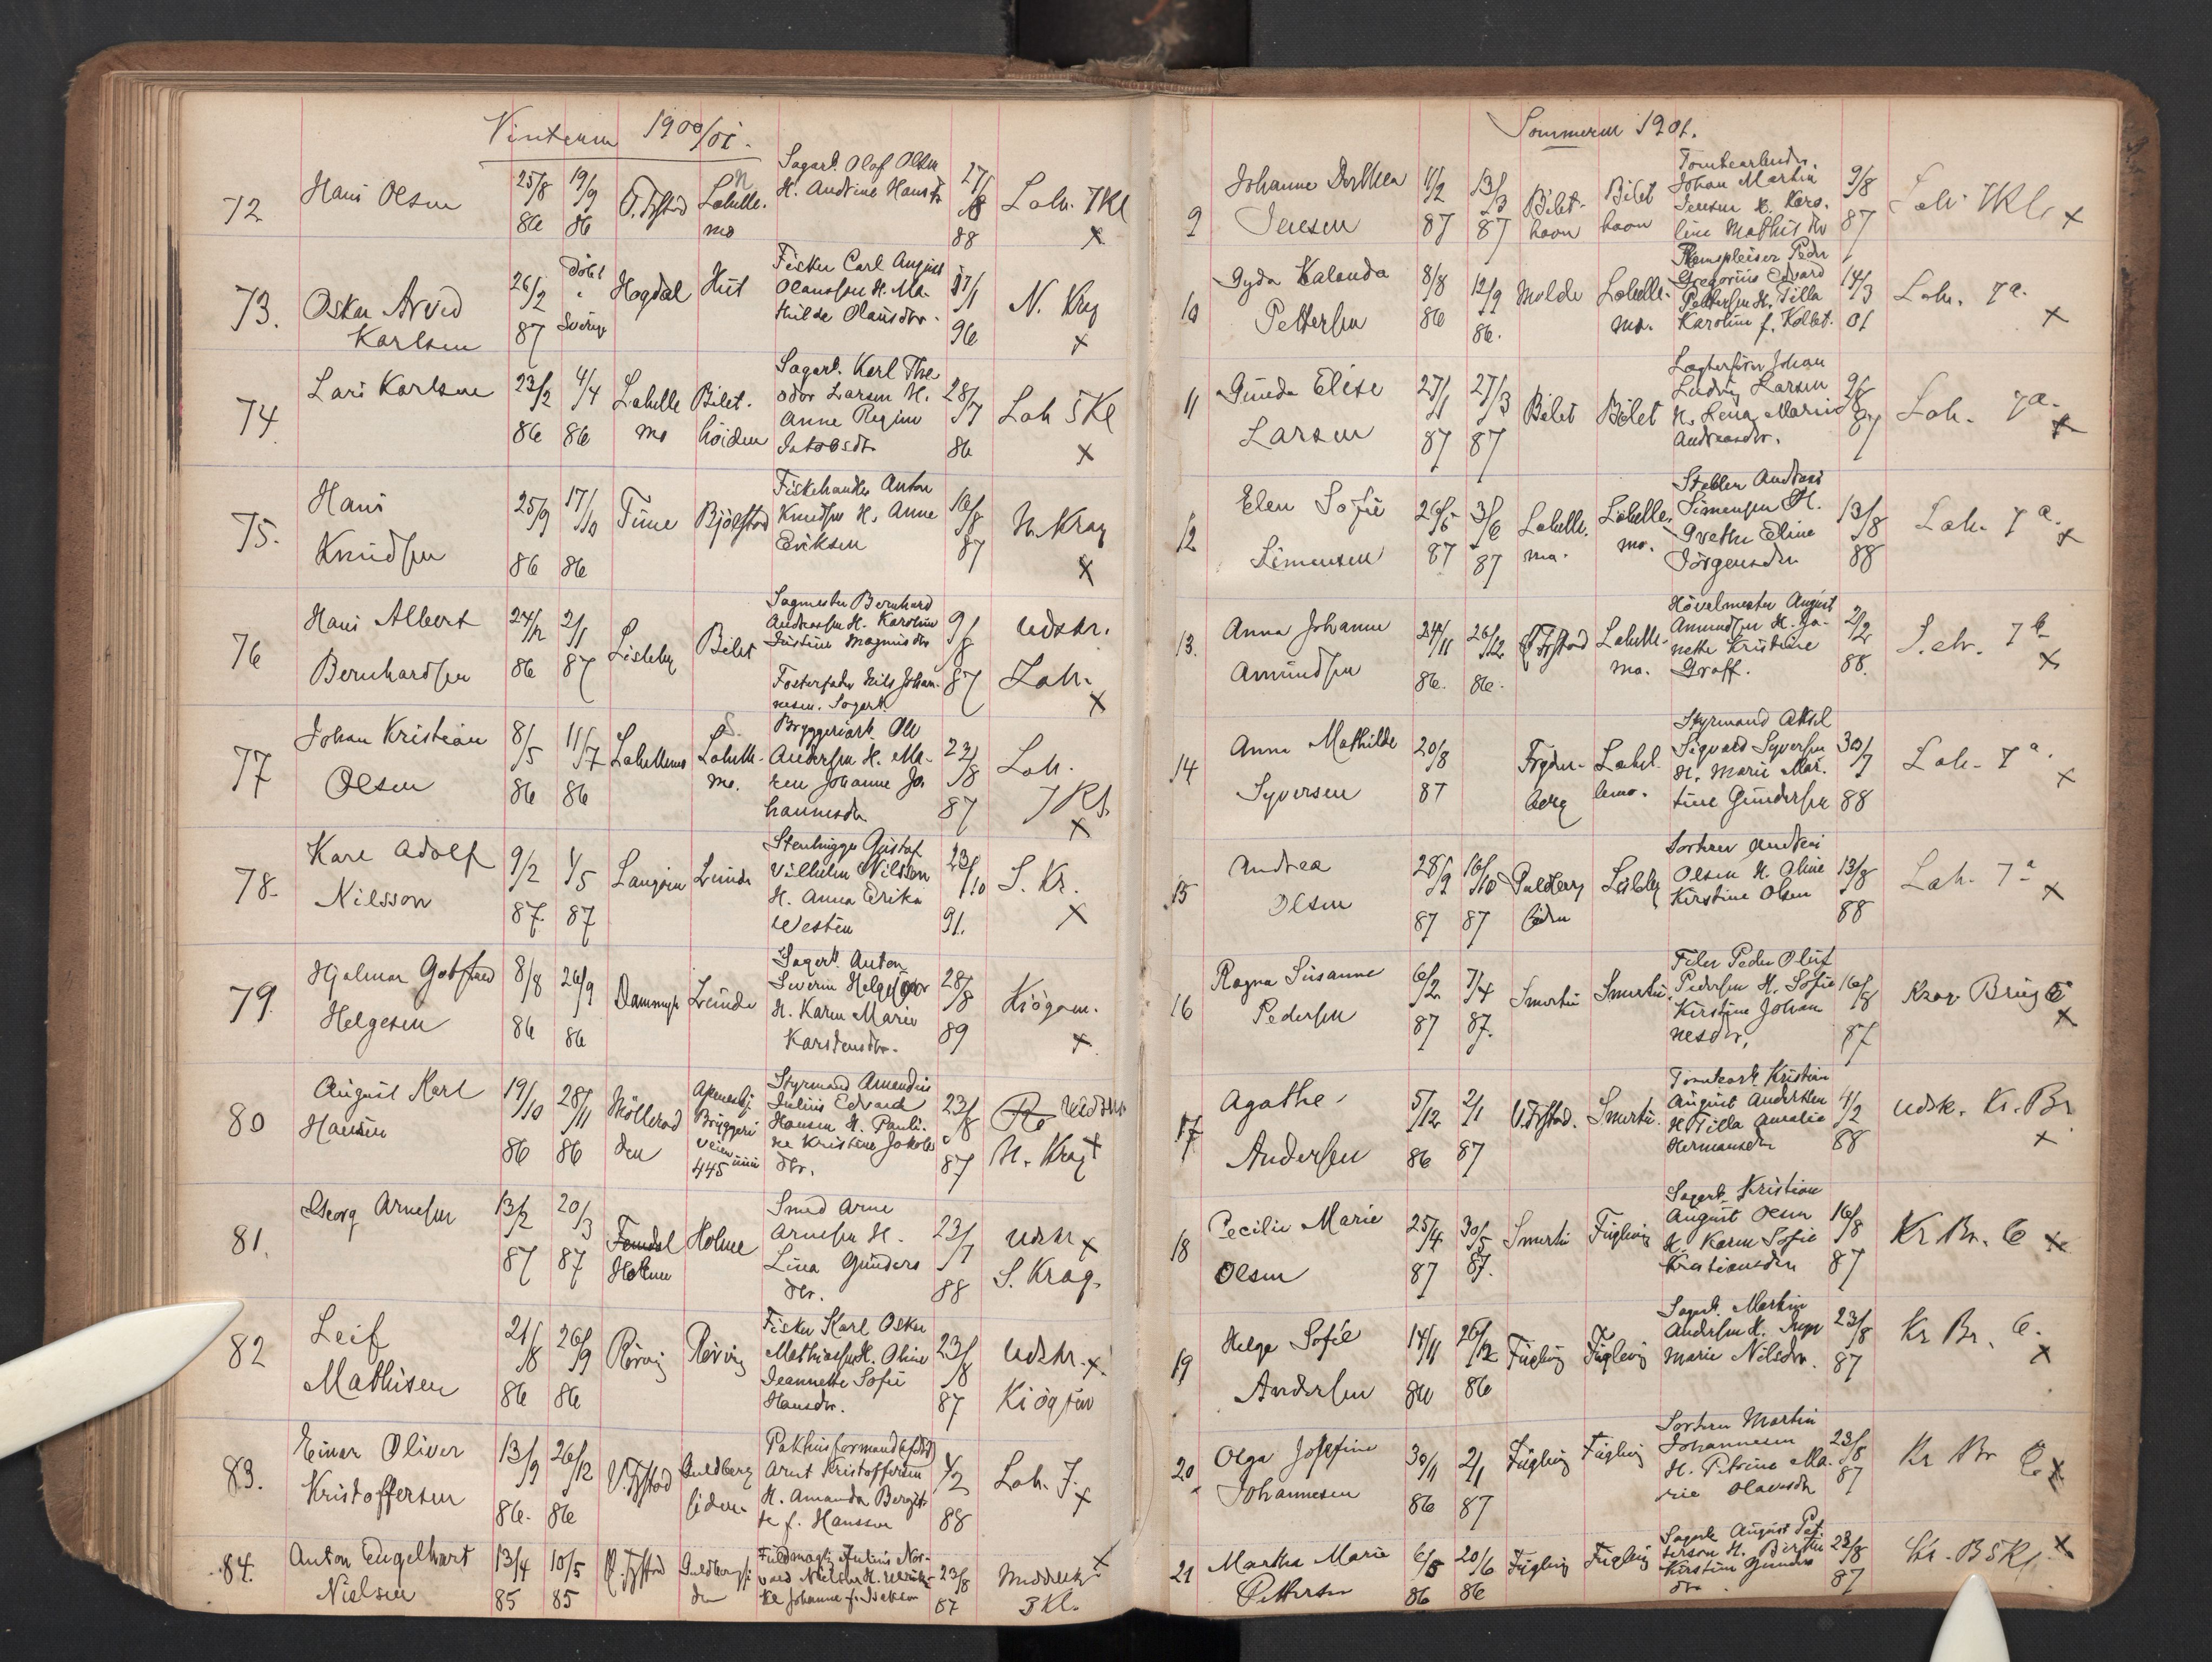 Vinteren 1900/01.
72 Hans Olsen 25/8 86 19/9 86 Ø. Fr.stad Labelle-
mo Sagarb. Olaf Olsen
H. Andrine Hansdr 27/8 88 Lah. 7 Kl x
73. Oskar Arvid
Karlsen 26/2 87 døbt i Sverige Hogdal Hut
Fisker Carl August
Olaussen H. Ma-
thilde Olausdr. 17/1 96 N. Krag x
74. Lars Karlsen 23/2 86 4/4 86 Labelle
mo Bilet-
høiden
Sagarb. Karl The
odor Larsen H.
Anne Regine
Jakobsdr 28/7 86 Lah 5 Kl x
75. Hans
Knudsen 25/9 86 17/10 86 Tune Bjølstad
Fiskehandler Anton
Knudsen H. Anne
Eriksen 16/8 87 N. Krag x
76 Hans Albert
Bernhardsen 24/12 86 2/1 87 Lisleby Bilet
Sagmester Bernhard
Andreassen H. Karoline
Justine Magnusdr
Fosterfader Nils Johan-
nesen. Sagarb. 9/8 87 Udskr.
Lah. x
77 Johan Kristian
Olsen 8/5 86 11/7 86 Labellemo Labelle-
mo.
Bryggeriarb. Ole
Andersen H. Ma-
ren Johanne Jo
hannesdr 23/8 87 Lah.
7 Kl. x
78. Karl Adolf
Nilsson 9/2 87. 1/5 87 Langøen Lunde
Stenhugger Gustaf
Vilhelm Nilsson
H. Anna Erika
Westin 23/10 91. S. Kr. x
79. Hjalmar Gotfred
Helgesen 8/8 86 26/9 86 Dammyr Lunde
Sagarb. Anton
Severin Helgesen
H. Karen Marie
Karstensdr. 28/8 89 Kiøgøen. x
80 August Karl
Hansen 19/10 86 28/11 86 Møllerod
den Bryggeri
veien
445
Styrmand Amandus
Julius Edvard
Hansen H. Pauli-
ne Kristine Jakobs
dtr. 23/8 87 Udskr
N. Krag x
81. Georg Arnesen 13/2 87 20/3 87
Holmen Holme
Smed Arne
Arnesen H.
Lina Gunders
dtr. 23/7 88 Udskr x
S. Krag.
82 Leif
Mathisen 21/8 86 26/9 86 Rørvig Rørvig
Fisker Karl Oskar
Mathiassen H. Oline
Jeannette Sofie
Hansdr. 23/8 87 Udskr. x
Kiøgøen
83. Einar Oliver
Kristoffersen 13/9 86. 26/12 86 V. Fr.stad Guldberg
siden.
Pakhusformand
Arnt Kristoffersen
H. Amanda Bergit
te f. Hanssen 4/2 88 Lah. 7. x
84. Anton Engelhart
Nielsen 13/4 85 10/5 85 Ø. Fr.stad Guldbergsi
den
Fuldmægtig Julius Nor-
vald Nielsen H.
Johanne f. Isaksen 23/8 87 Middelsk. x
3 Kl.
Sommeren 1901.
9 Johanne Dorthea
Jensen 11/2 87 13/3 87 Bilet-
havn Bilet
havn
Tomtearbeider.
Johan Martin
Jensen H. Karo-
line Mathisdr 9/8 87 Lah. 7 Kl. x
10 Gyda Kalanda
Pettersen 8/8 86 12/9 86. Molde Labelle-
mo.
Remspleiser Peder
Gregorius Edvard
Pettersen H. Tilla
Karoline f. Kolbet. 14/3 01 Lah. 7a. x
11 Gunda Elise
Larsen 27/1 87 27/3 87 Bilet Bilet
Johan
Ludvig Larsen
H. Lena Marie
Andreasdr. 9/8 87 Lah. 7a. x
12 Elen Sofie
Simensen 26/5 87 3/6 87 Labelle-
mo. Labelle-
mo.
Stabler Andreas
Simensen H.
Grethe Eline
Jørgensdtr 13/8 88 Lah. 7a. x
13. Anna Johanne
Amundsen 24/11 86. 26/12 86. Ø. Fr.stad Labelle-
mo.
Høvelmester August
Amundsen H. Ja-
nette Kristine
Graff. 2/2 88. Lah. 7b x
14 Anna Mathilde
Syversen 20/8 87 Frydens-
berg Label-
lemo.
Styrmand Aksel
Sigvard Syversen
H. Marie Mar-
tine Gundersen 30/7 88 Lah. 7a. x
15 Andrea
Olsen 28/9 87 16/10 87 Guldberg
siden Lisleby
Sorterer Andreas
Olsen H. Oline
Kirstine Olsen 13/8 88 Lah. 7a x
16 Ragna Susanne
Pedersen 6/2 87 7/4 87. Smertu Smertu.
Filer Peder Oluf
Pedersen H. Sofie
Kirstine Johan
nesdr. 16/8 87 Krag. Brug 6 x
17 Agathe
Andersen 5/12 86 2/1 87 V. Fr.stad. Smertu.
Tomtearb. Kristian
August Andersen
H. Tilla Amalie
Hermansdr 4/2 88 Udsk. Kr. Br x
18 Cecilie Marie
Olsen 25/4 87 30/5 87. Smertu Fuglevig
Sagarb. Kristian
August Olsen
H. Karen Sofie
Kristiansdtr 16/8 87 Kr Br. 6 x
19 Helga Sofie
Andersen 14/11 86 26/12 86 Fuglevig Fuglevig
Sagarb. Martin
Andersen H. Inger
Marie Nilsdr. 23/8 87 Kr Br. 6. x
20 Olga Josefine
Johannesen 30/11 86 2/1 87 Fuglevig Fuglevig
Sorterer Martin
Johannesen
H. Petrine Ma-
rie Olavesdr 23/8 87 Kr Br 6 x
21 Martha Marie
Pettersen 6/5 86 20/6 86 Fuglevig Fuglevig
Sagarb August Pet
terson H. Birthe
Kirstine Gunders
dtr 23/8 87 Kr. B 5 Kl. x